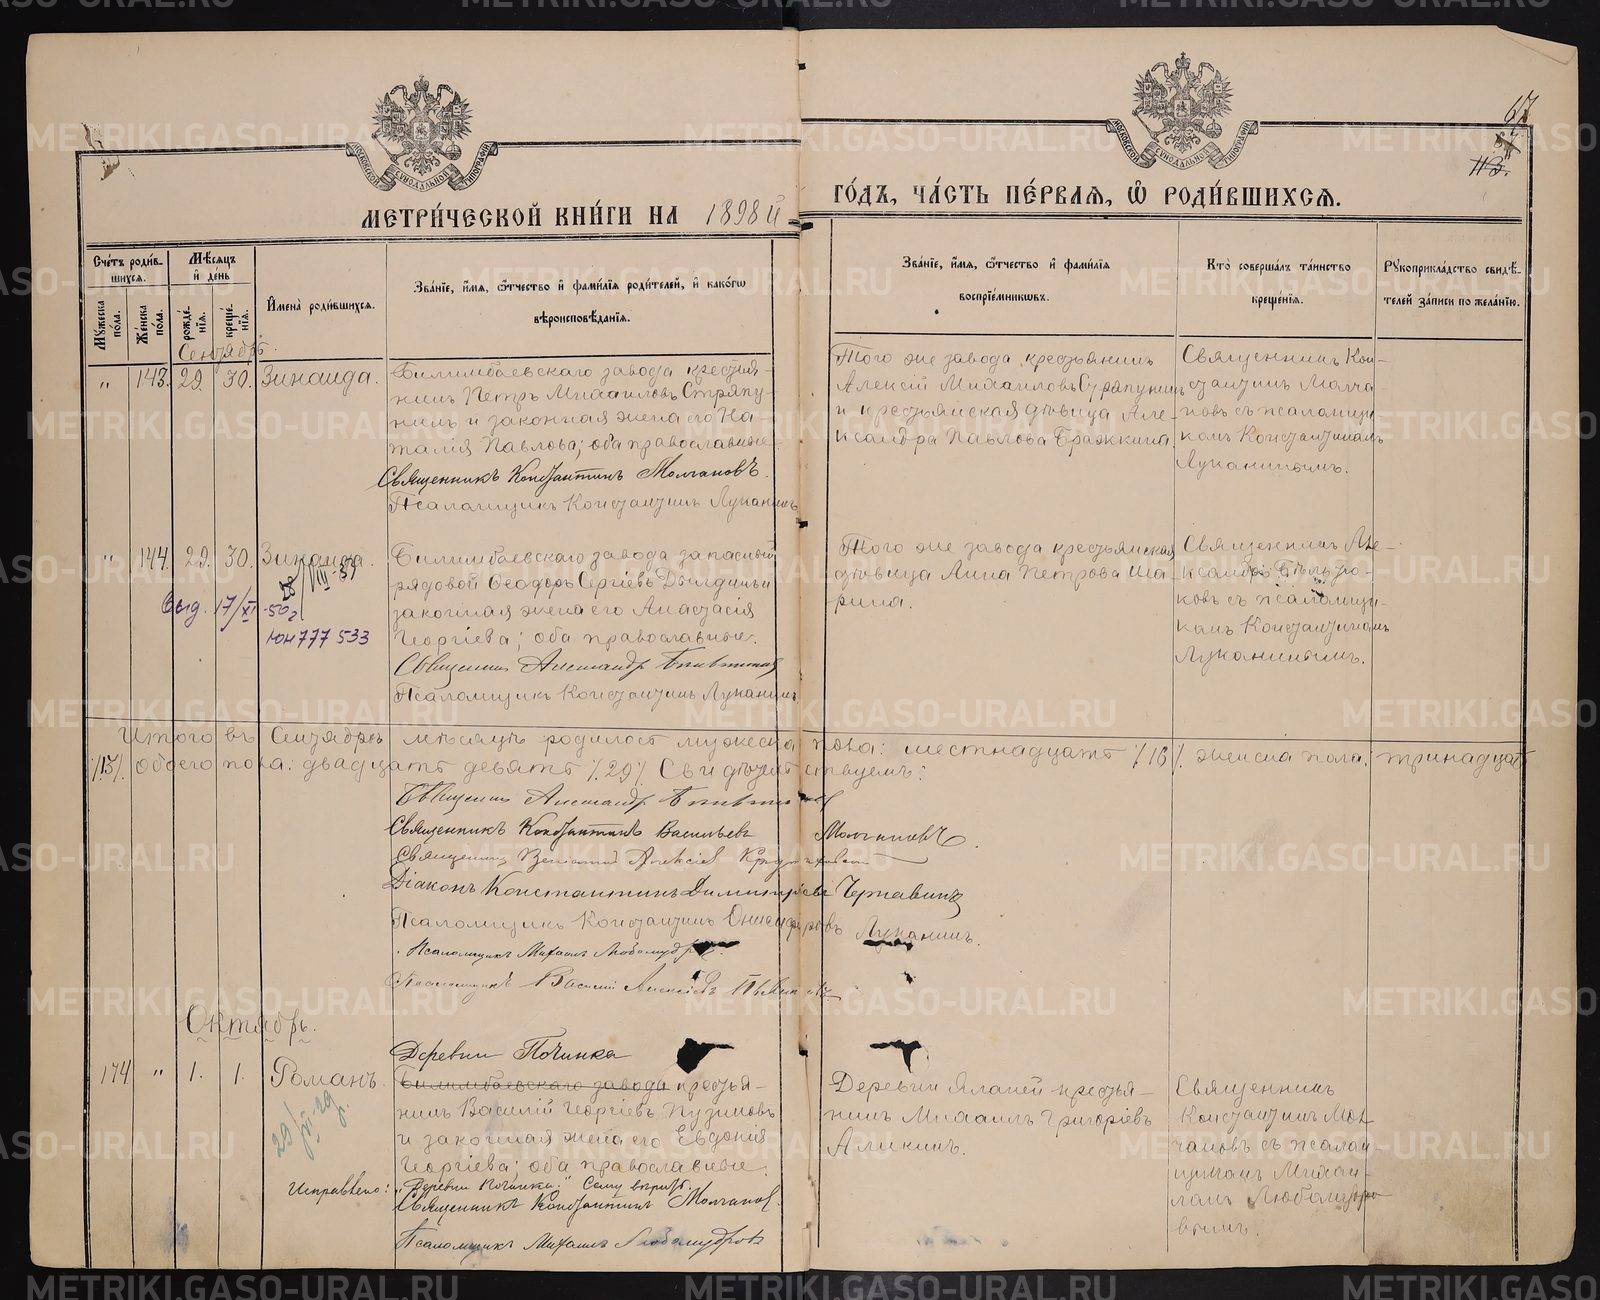 67
113.
МОСКОВСКОЙ СѴНОДАЛЬНОЙ ТИПОГРАФІИ
МОСКОВСКОЙ СѴНОДАЛЬНОЙ ТИПОГРАФІИ
МЕТРИ́ЧЕСКОЙ КНИ́ГИ НА 1898й ГО́ДЪ, ЧА́СТЬ ПЕ́РВАЯ, Ѡ РОДИ́ВШИХСЯ.
Сче́тъ роди́вшихся.
Мꙋжеска по́ла.
Же́нска по́ла.
Мѣ́сяцъ и҆ де́нь
рожде́нїя.
креще́нїя.
И҆мена̀ роди́вшихся.
Зва́нїе, и҆́мя, ѻ҆́тчество и҆ фами́лїя роди́телей, и҆ како́гѡ
вѣроисповѣ́данїя.
Зва́нїе, и҆́мя, ѻ҆́тчество и҆ фами́лїя
воспрїе́мникѡвъ.
Кто̀ соверша́лъ та́инство
креще́нїя.
Рꙋкоприкла́дство свидѣ́-
телей за́писи по жела́нїю.
Сентябрь
" 143. 29. 30. Зинаида.
Билимбаевскаго завода крестья-
нинъ Петръ Михаиловъ Стряпу-
нинъ и законная жена его На-
талія Павлова; оба православные
Священникъ Константинъ Молчановъ.
Псаломщикъ Константинъ Луканинъ
Того же завода, крестьянинъ
Алексій Михаиловъ Стряпунинъ
и крестьянская дѣвица Але-
ксандра Павлова Бражкина.
Священникъ Кон-
стантинъ Молча-
новъ съ псаломщи-
комъ Константиномъ
Луканинымъ.
" 144. 29. 30. Зинаида.
Выд. 17/XI -50г
ЮН 777 533
Билимбаевскаго завода запасный
рядовой Ѳеодоръ Сергіевъ и
законная жена его Анастасія
Георгіева; оба православные.
Священникъ Александръ
Псаломщикъ Константинъ Луканинъ
Того же завода крестьянская
дѣвица Анна Петрова Ша-
рина.
Священникъ Але-
ксандръ
ковъ съ псаломщи-
комъ Константиномъ
Луканинымъ.
Итого въ Сентябрѣ мѣсяцѣ родилось мужеска пола: шестнадцать /16/. женска пола: тринадцать
/13/. обоего пола: двадцать девять /29/. Свидѣтельствуемъ:
Священникъ Александръ
Священникъ Константинъ Васильевъ Молчановъ.
Священникъ Алексіев
Діаконъ Константинъ Димитріевъ Чернавинъ
Псаломщикъ Константинъ Онисифоровъ Луканинъ.
Псаломщикъ Михаилъ Любомудровъ.
Псаломщикъ Василій Алексѣевъ
Октябрь.
174 " 1. 1. Романъ.
Деревни Починка
Билимбаевскаго завода крестья-
нинъ Василій Георгіевъ Пузиковъ
и законная жена его Евдокія
Георгіева; оба православные.
Исправлено: "Деревни Починка." Сему вѣрить.
Священникъ Константинъ Молчановъ.
Псаломщикъ Михаилъ Любомудровъ
Деревни крестья-
нинъ Михаилъ Григоріевъ
Аликинъ.
Священникъ
Константинъ Мол-
чановъ съ псалом-
щикомъ Михаи-
ломъ Любомудро-
вымъ.
METRIKI.GASO-URAL.RU